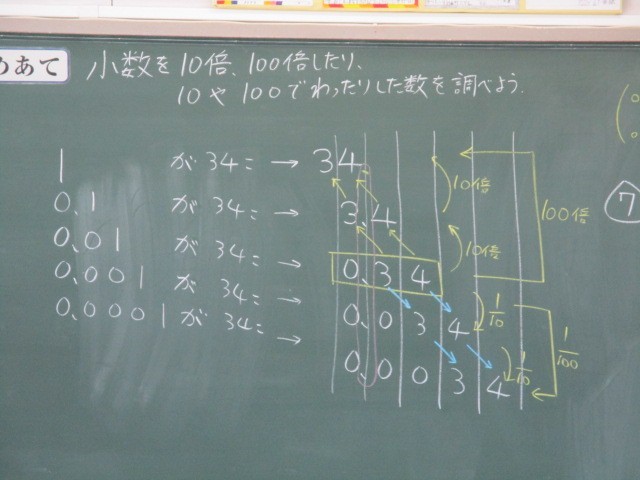 めあて
小数を10倍、100倍したり、
10や100でわったりした数を調べよう.
1 が34こ → 34.
0.1 が34こ → 3.4
0.01 が34こ → 0.34
0.001 が34こ → 0.034
0.0001 が34こ → 0.0034
10倍
10倍
100倍
1/10
1/10
1/100
7